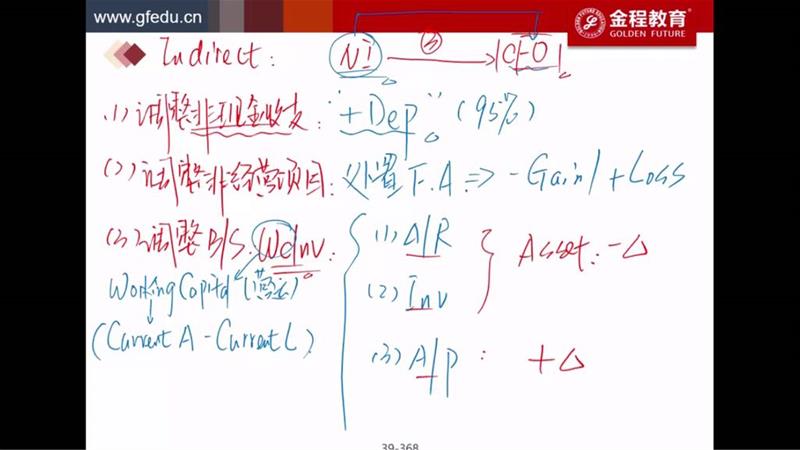 www.gfedu.cn
金程教育
GOLDEN FUTURE
Indirect: NI ③ CFO
(1) 调整非现金收支: "+Dep" (95%)
(2) 调整非经营项目: 处置 F.A => -Gain/+Loss
(3) 调整 B/S. WcInv:
(1) A/R
Asset: -△
(2) Inv
Working Capital (营运)
(Current A - Current L)
(3) A/P: +△
39-368